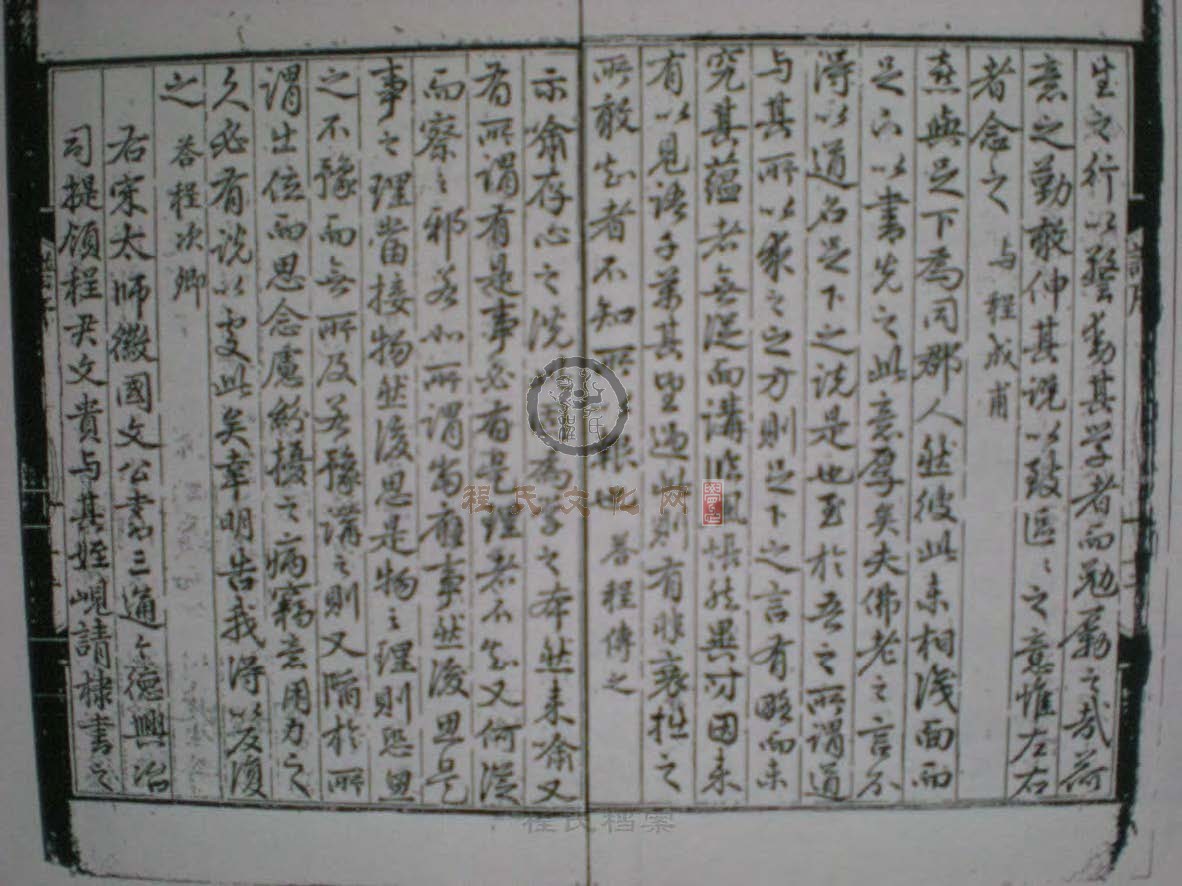 生之行以發其学者而勉勵之哉荷
意之勤敢伸其说以致區〻之意惟左右
者念之 与程成甫
熹與足下為同郡人然彼此未相識面而
足下以書先之此意厚矣夫佛老之言不
得以道名足下之说是也至於吾之所謂道
与其所以求之之方則足下之言有略而未
究其蘊者無從面講臨風悵然異时因来
有以見语千萬其望過此則有非衰拙之
所敢知者不知所報也 答程傳之
示喻存心之说為学之本然来喻又
有所謂有是事必有是理者不知又何從
而察之邪若如所謂當應事然後思是
事之理當接物然後思是物之理則恐思
之不豫而無所及若豫講之則又陷於所
謂出位而思念慮紛擾之病竊意用力之
久必有说以處此矣幸明告我得以反復
之 答程次卿
右宋太師徽國文公書三通〻德興冶
司提領程尹文貴与其姪峴請棣書之
程氏文化网
程氏档案